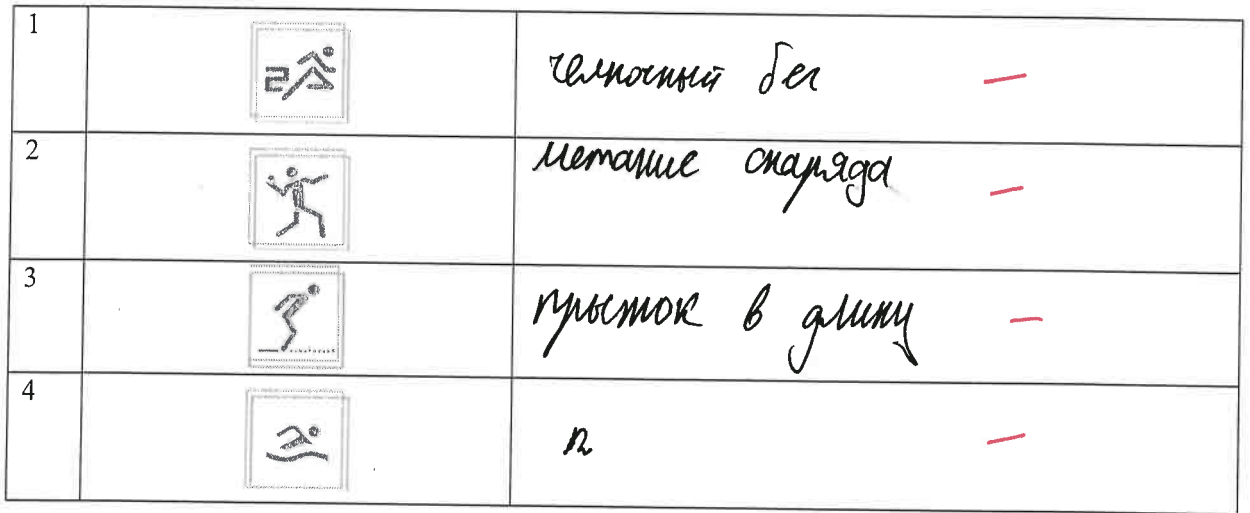 1
челночный бег
2
метание снаряда
3
прыжок в длину
4
п